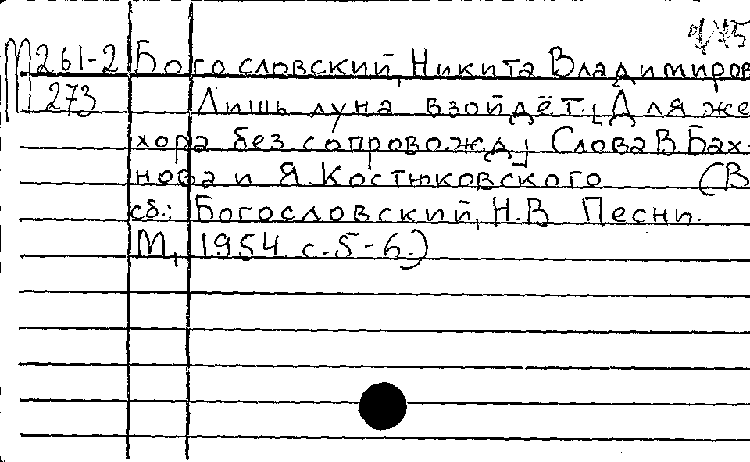 М 261-2 Богословский, Никита Владимиров
273 Лишь луна взойдёт. Для же
хора без сопровожд. Слова В. Бах-
нова и Я. Костюковского (В
сб.: Богословский, Н.В. Песни.
М., 1954. с. 5-6.)